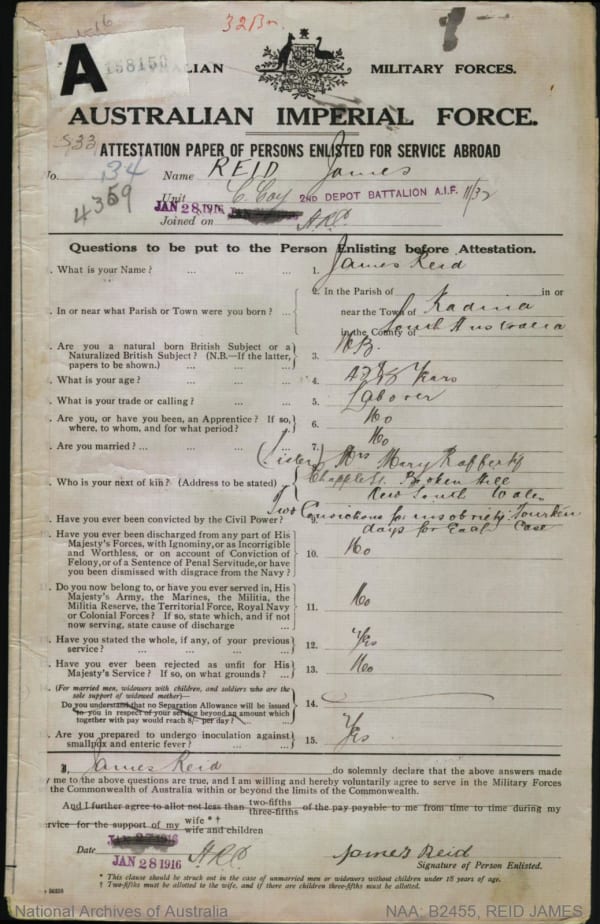 32Bn
A
158150
ALIAN MILITARY FORCES.
AUSTRALIAN IMPERIAL FORCE.
ATTESTATION PAPER OF PERSONS ENLISTED FOR SERVICE ABROAD
533
No. 34 Name REID James
4359
Unit C. Coy 2ND DEPOT BATTALION A.I.F. 11/32
JAN 28.1916
Joined on
Questions to be put to the Person Enlisting before Attestation.
. What is your Name? ... ... ... 1. James Reid
. In or near what Parish or Town were you born? ... 2. In the Parish of in or
near the Town of Kadina
in the County of South Australia
. Are you a natural born British Subject or a
Naturalized British Subject? (N.B.—If the latter,
papers to be shown.) ... ... ... 3. N.B.
. What is your age? ... ... ... 4. Years
. What is your trade or calling? ... ... 5. Laborer
. Are you, or have you been, an Apprentice? If so,
where, to whom, and for what period? ... 6. No
. Are you married? ... ... ... 7. No
. Who is your next of kin? (Address to be stated) (Sister) Mrs Mary Rafferty
Chapple St. Broken Hill
New South Wales
. Have you ever been convicted by the Civil Power? 9. Two Convictions for insobriety. Fourteen
days for Each Case
. Have you ever been discharged from any part of His
Majesty's Forces, with Ignominy, or as Incorrigible
and Worthless, or on account of Conviction of
Felony, or of a Sentence of Penal Servitude, or have
you been dismissed with disgrace from the Navy? 10. No
. Do you now belong to, or have you ever served in, His
Majesty's Army, the Marines, the Militia, the
Militia Reserve, the Territorial Force, Royal Navy
or Colonial Forces? If so, state which, and if not
now serving, state cause of discharge ... 11. No
. Have you stated the whole, if any, of your previous
service? ... ... ... ... 12. Yes
. Have you ever been rejected as unfit for His
Majesty's Service? If so, on what grounds? ... 13. No
(For married men, widowers with children, and soldiers who are the
sole support of widowed mother)—
Do you understand that no Separation Allowance will be issued
to you in respect of your service beyond an amount which
together with pay would reach 8/- per day? ... 14.
. Are you prepared to undergo inoculation against
smallpox and enteric fever? ... ... 15. Yes
I, James Reid do solemnly declare that the above answers made
y me to the above questions are true, and I am willing and hereby voluntarily agree to serve in the Military Forces
the Commonwealth of Australia within or beyond the limits of the Commonwealth.
And I further agree to allot not less than two-fifths three-fifths of the pay payable to me from time to time during my
service for the support of my wife *† wife and children
Date JAN 27 1916
JAN 28 1916
James Reid
Signature of Person Enlisted.
* This clause should be struck out in the case of unmarried men or widowers without children under 18 years of age.
† Two-fifths must be allotted to the wife, and if there are children three-fifths must be allotted.
National Archives of Australia NAA: B2455, REID JAMES